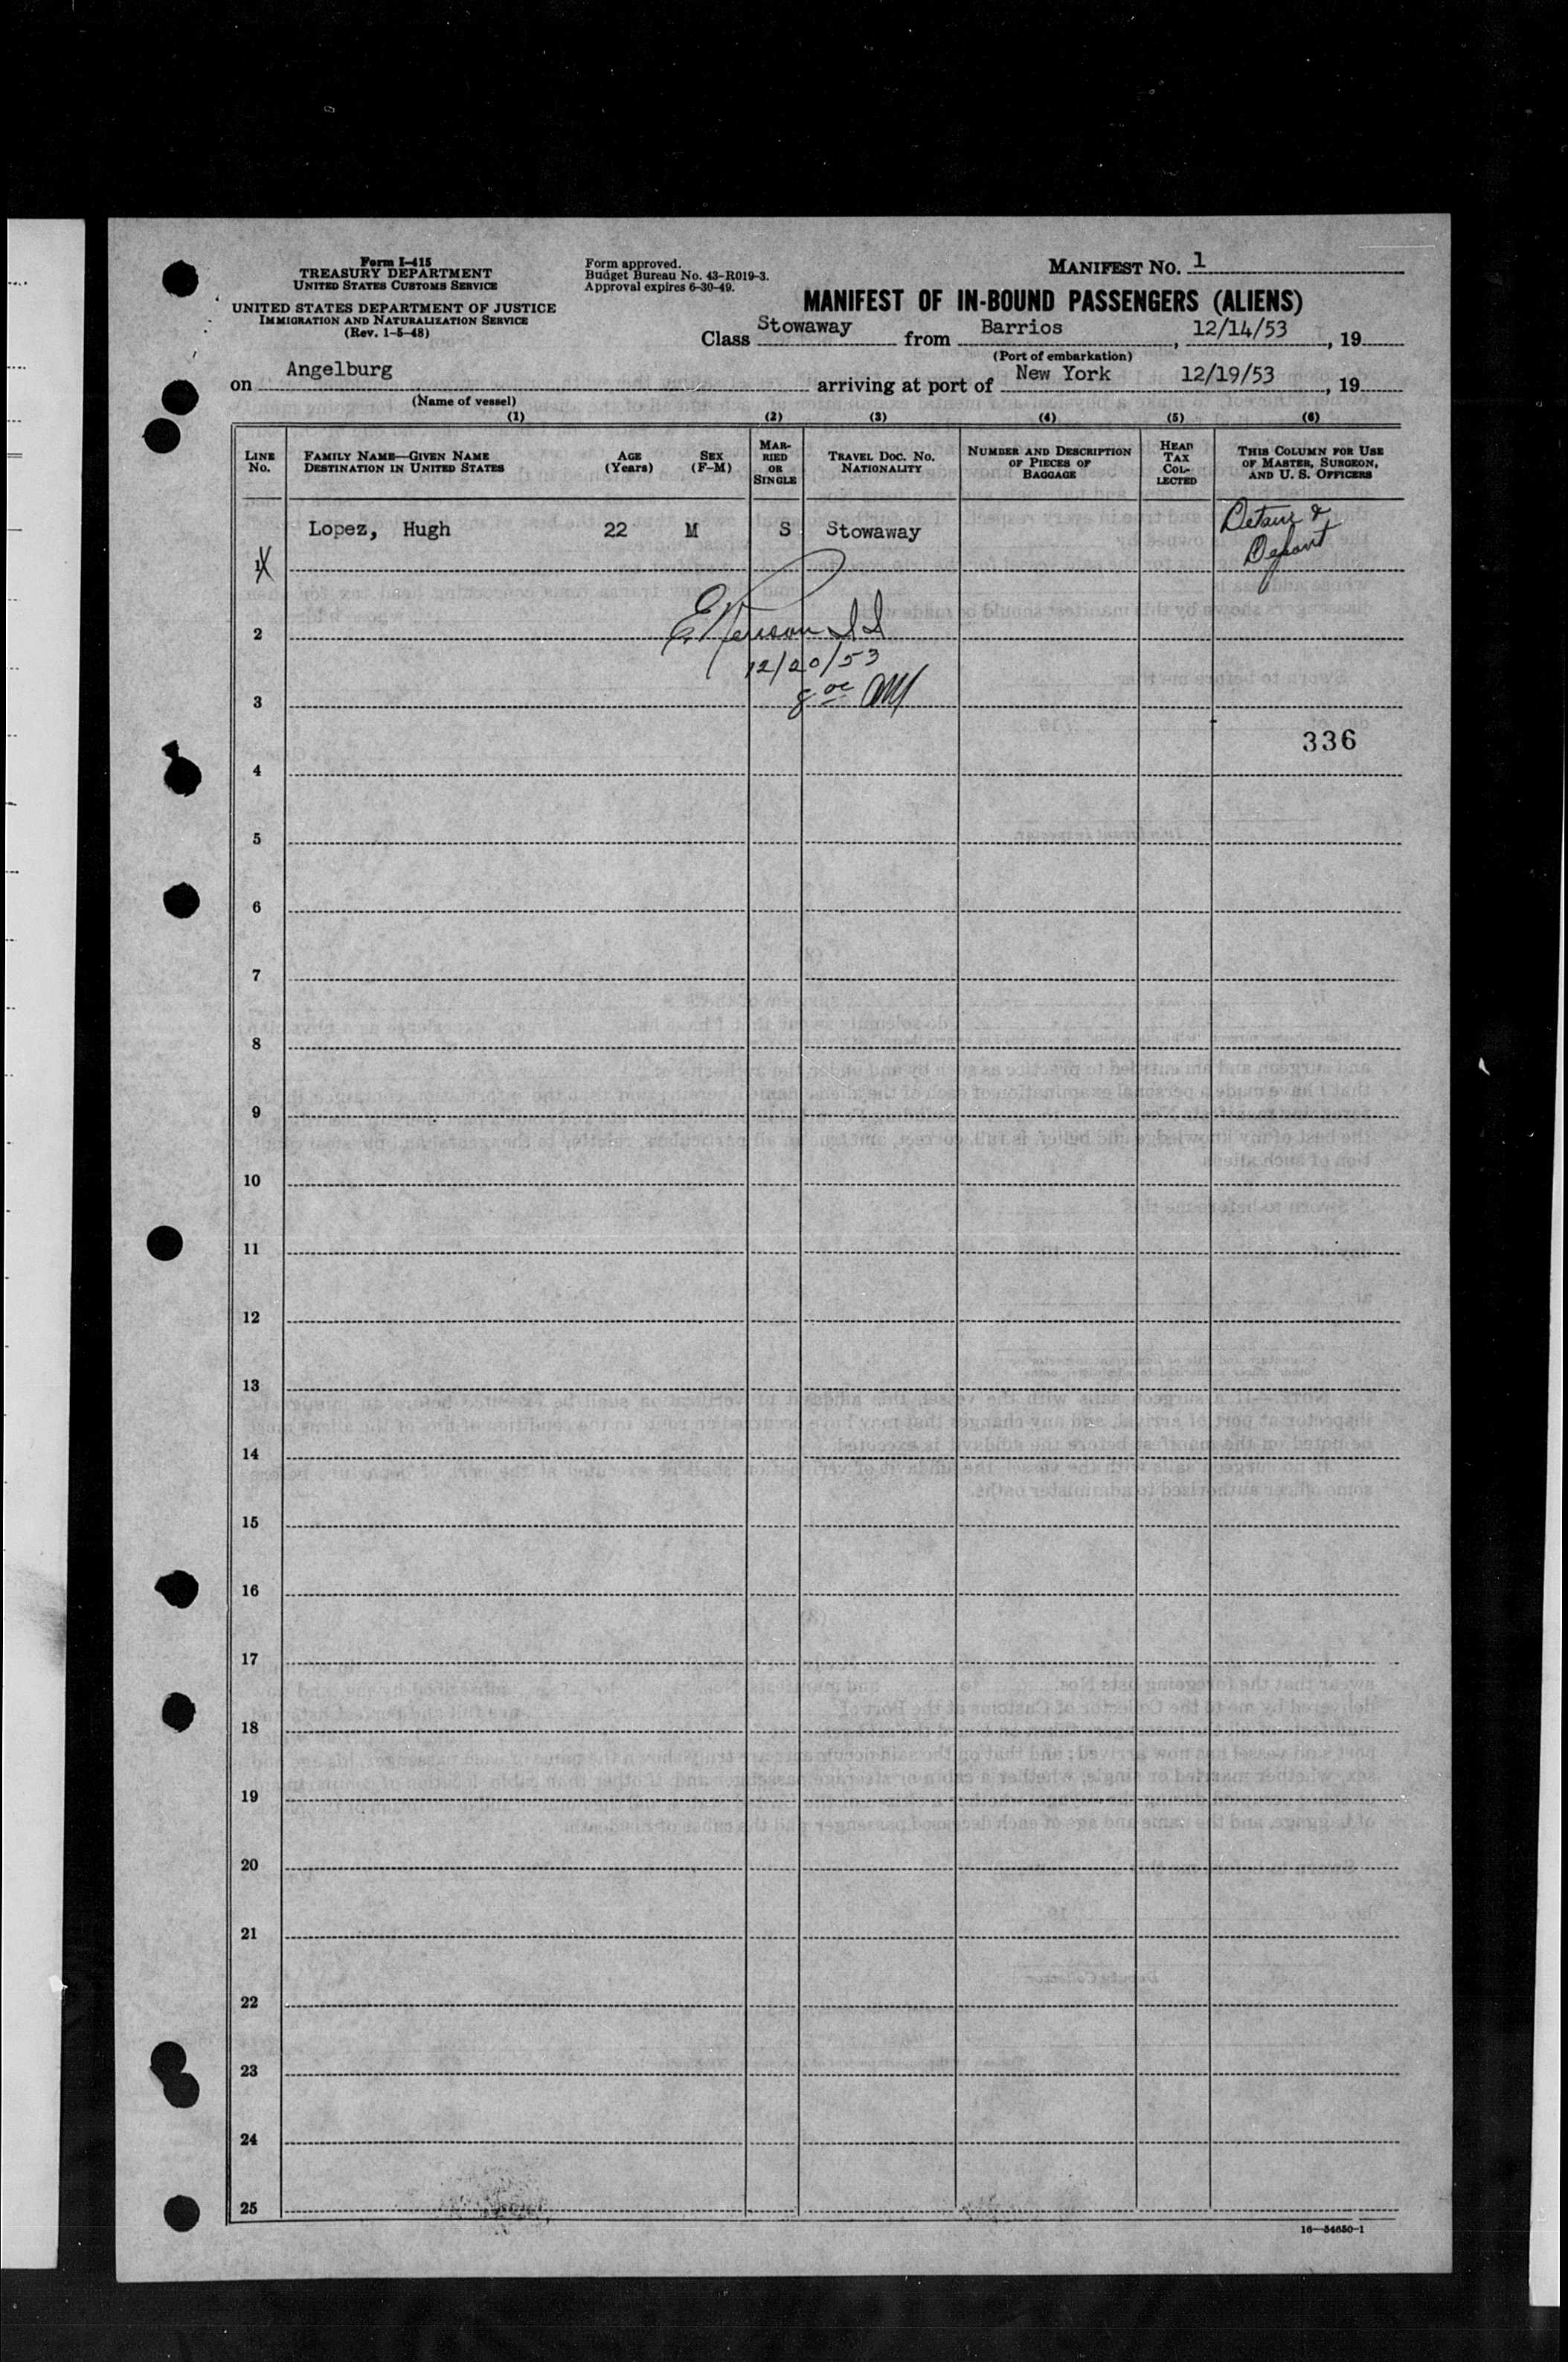 Form I-415
TREASURY DEPARTMENT
UNITED STATES CUSTOMS SERVICE
UNITED STATES DEPARTMENT OF JUSTICE
IMMIGRATION AND NATURALIZATION SERVICE
(Rev. 1-5-48)
Form approved.
Budget Bureau No. 43-R019-3.
Approval expires 6-30-49.
MANIFEST NO. 1
MANIFEST OF IN-BOUND PASSENGERS (ALIENS)
Class Stowaway from Barrios, 12/14/53, 19
(Port of embarkation)
on Angelburg arriving at port of New York 12/19/53, 19
(Name of vessel)
(1) (2) (3) (4) (5) (6)
LINE No. FAMILY NAME—GIVEN NAME DESTINATION IN UNITED STATES AGE (Years) SEX (F-M) MARRIED OR SINGLE TRAVEL DOC. NO. NATIONALITY NUMBER AND DESCRIPTION OF PIECES OF BAGGAGE HEAD TAX COLLECTED THIS COLUMN FOR USE OF MASTER, SURGEON, AND U. S. OFFICERS
Lopez, Hugh 22 M S Stowaway Detain & Deport
1
2
12/20/53
3
8 AM
336
4
5
6
7
8
9
10
11
12
13
14
15
16
17
18
19
20
21
22
23
24
25
16—54650-1